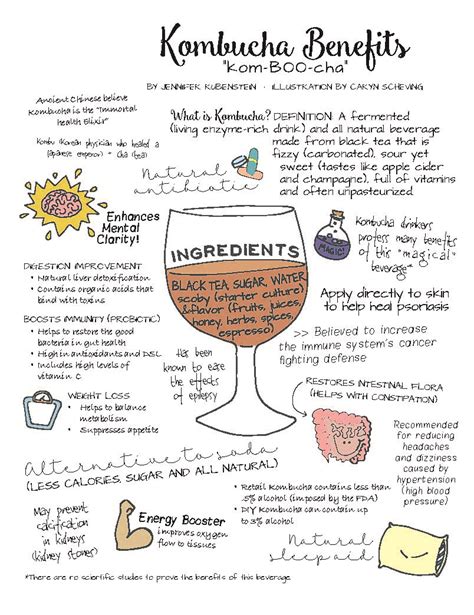 Kombucha Benefits
"Kom-BOO-cha"
BY JENNIFER RUBENSTEIN · ILLUSTRATION BY CARYN SCHEVING
Ancient Chinese believe
Kombucha is the "Immortal
Health Elixir"
Kombu (Korean physician who healed a
Japanese emperor) + Cha (tea)
What is Kombucha? DEFINITION: A fermented
(living enzyme-rich drink) and all natural beverage
made from black tea that is
fizzy (carbonated), sour yet
sweet (tastes like apple cider
and champagne), full of vitamins
and often unpasteurized.
Natural
antibiotic
Enhances
Mental
Clarity!
MAGIC!
Kombucha drinkers
profess many benefits
of this "magical"
beverage"
INGREDIENTS
BLACK TEA, SUGAR, WATER
scoby (starter culture)
& flavor (fruits, juices,
honey, herbs, spices,
espresso)
DIGESTION IMPROVEMENT
• Natural liver detoxification
• Contains organic acids that
bind with toxins
BOOSTS IMMUNITY (PROBIOTIC)
• Helps to restore the good
bacteria in gut health
• High in antioxidants and DSL
• Includes high levels of
vitamin C
Apply directly to skin
to help heal psoriasis
>> Believed to increase
the immune system's cancer
fighting defense
Has been
known to ease
the effects
of epilepsy
WEIGHT LOSS
• Helps to balance
metabolism
• Suppresses appetite
RESTORES INTESTINAL FLORA
(HELPS WITH CONSTIPATION)
Recommended
for reducing
headaches
and dizziness
caused by
hypertension
(high blood
pressure)
Alternative to soda
(LESS CALORIES, SUGAR AND ALL NATURAL)
• Retail Kombucha contains less than
.5% alcohol (imposed by the FDA)
• DIY Kombucha can contain up
to 3% alcohol
May prevent
calcification
in kidneys
(kidney stones)
Energy Booster
improves oxygen
flow to tissues
Natural
sleep aid
*There are no scientific studies to prove the benefits of this beverage